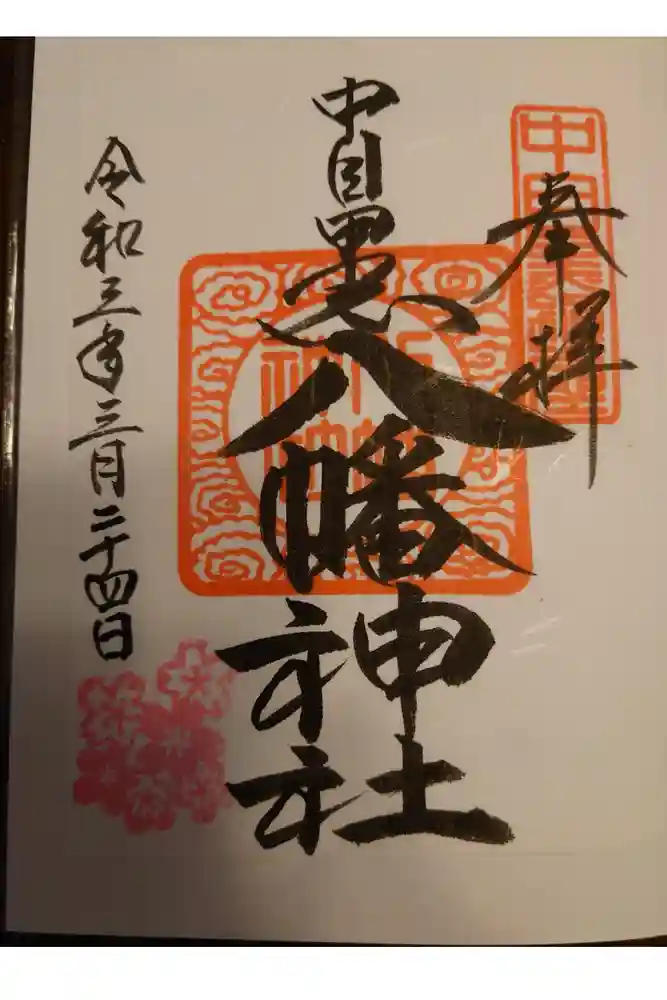 奉拝
中目黒八幡神社
令和三年三月二十四日